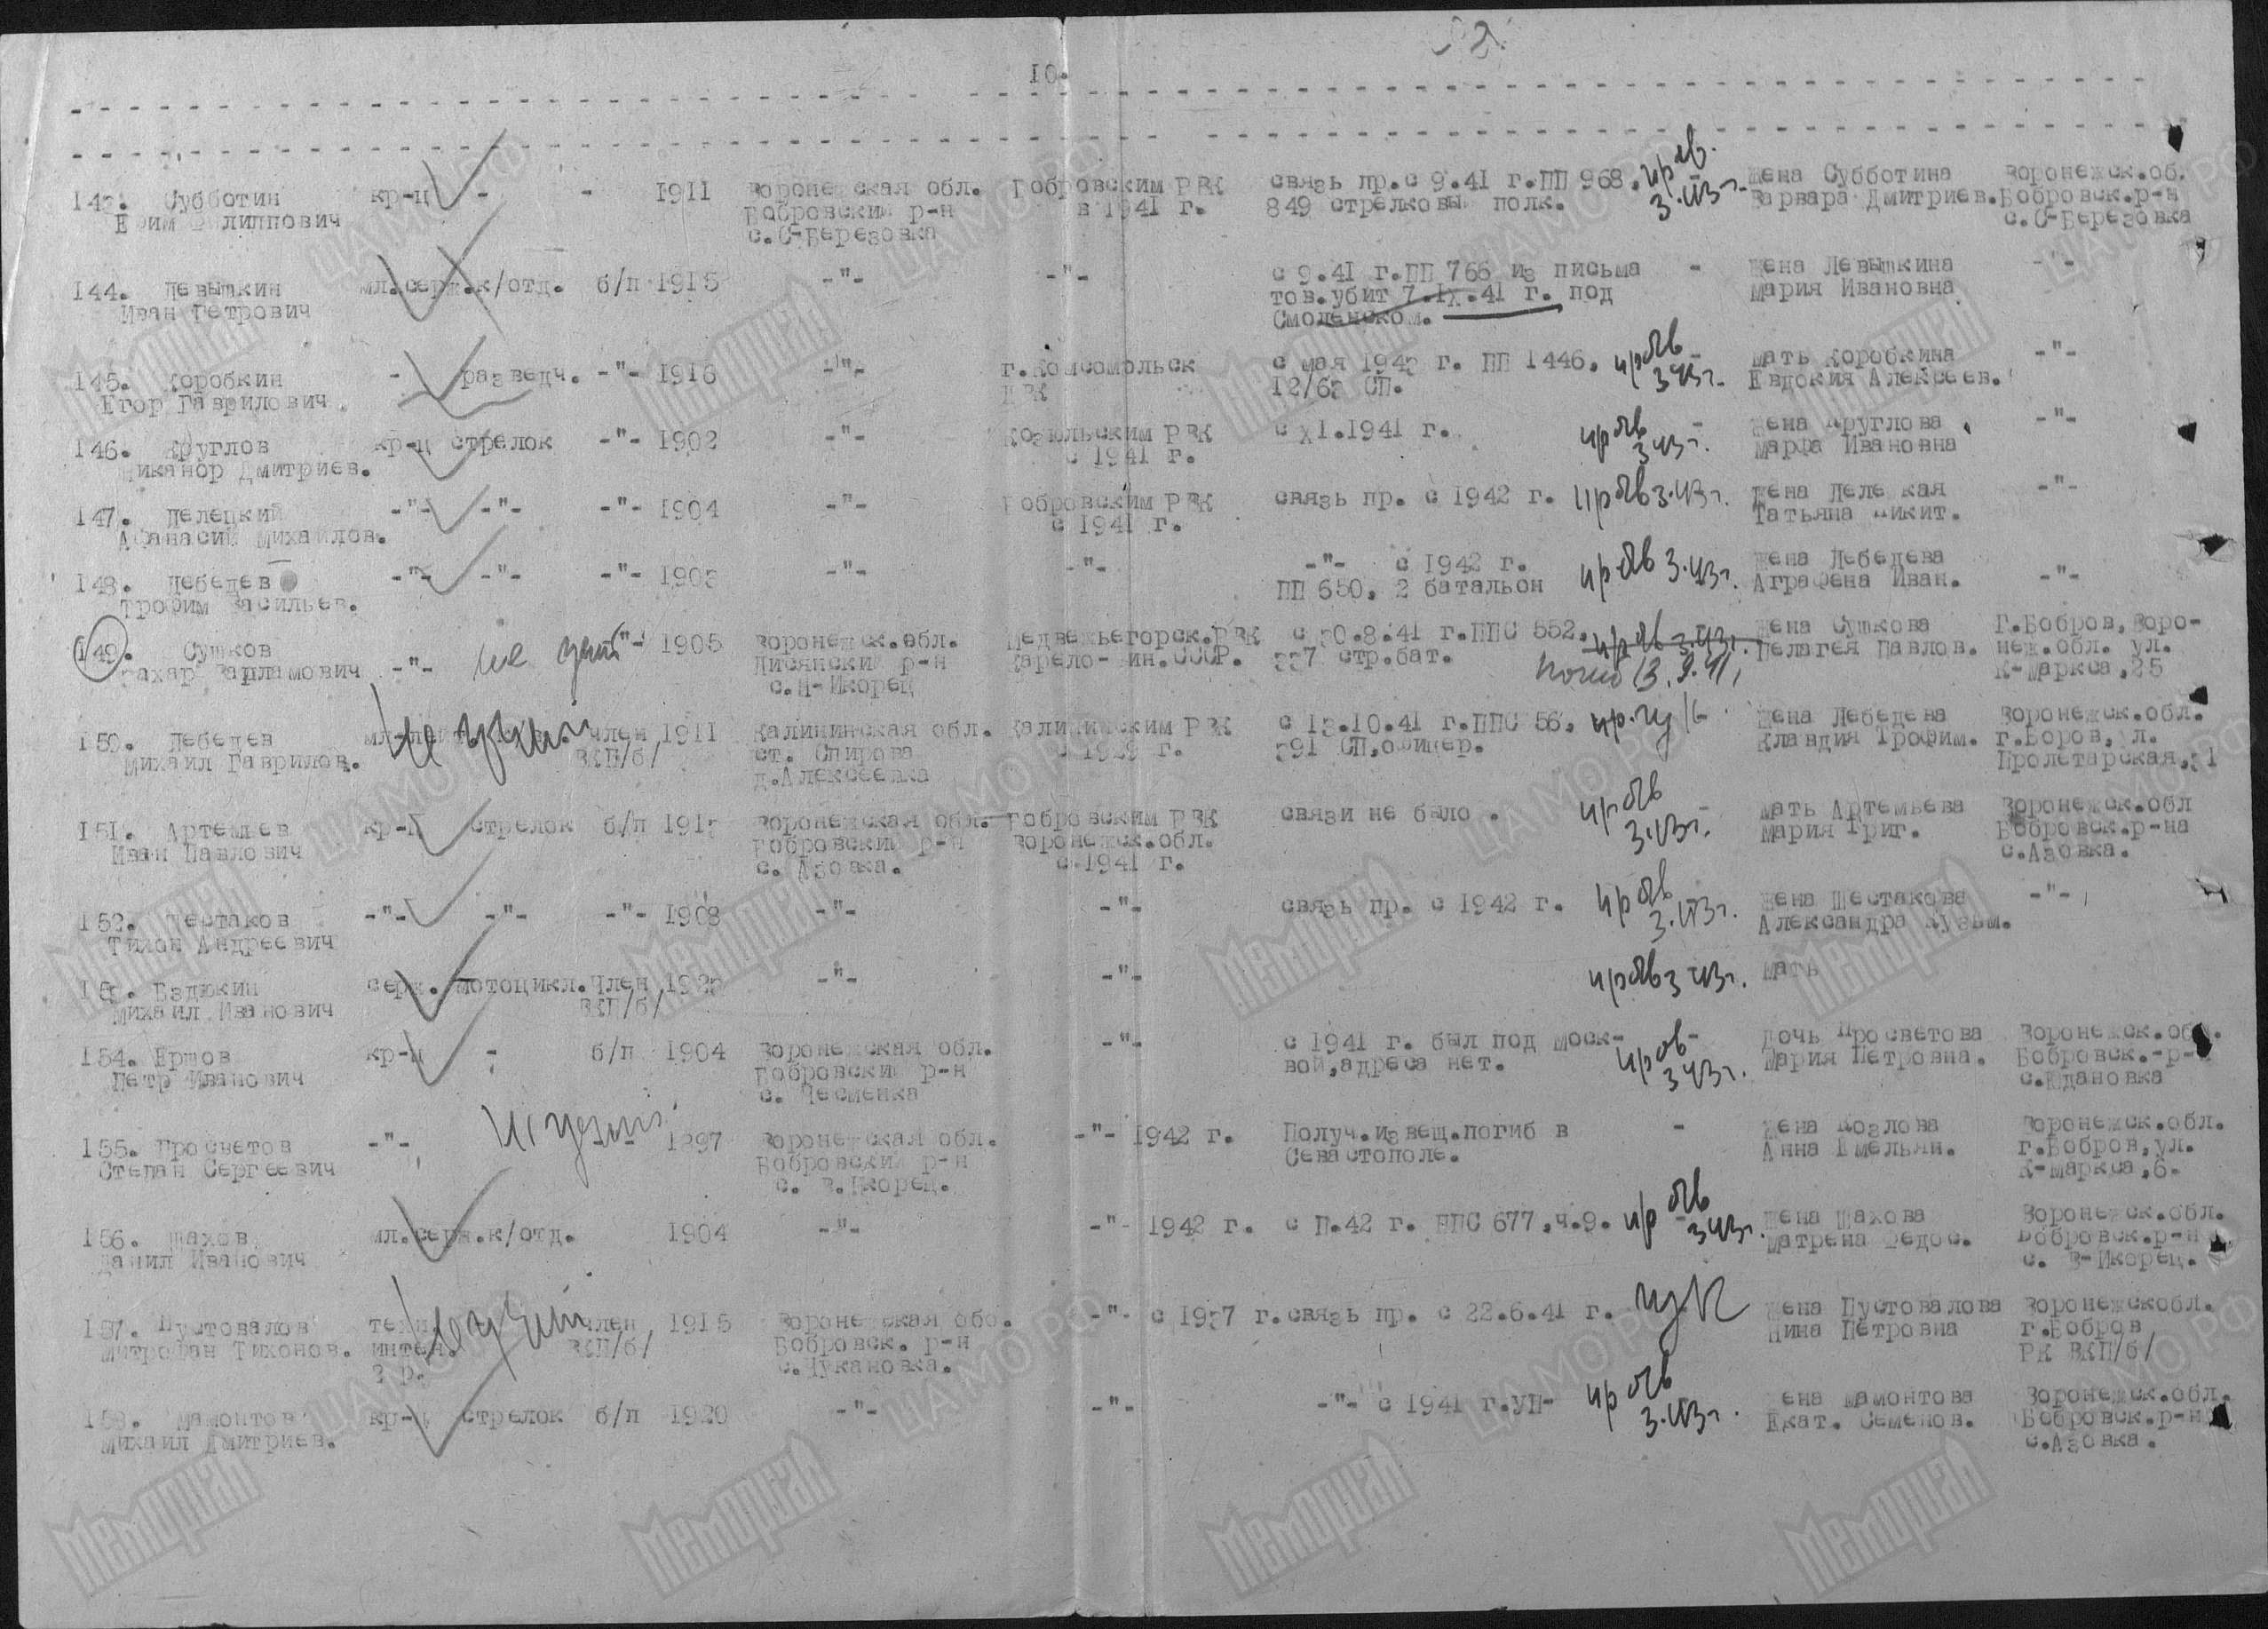 10.
143. Субботин кр-ц - - 1911 Воронежская обл. Бобровским РВК связь пр.с 9.41 г.ПП 968. пр. Жена Субботина Воронежск.об.
Ефим Филиппович Бобровский р-н в 1941 г. 849 стрелковый полк. 3.43г. Варвара Дмитриев. Бобровск.р-н
с.С-Березовка с.С-Березовка
144. Левышкин мл.серж.к/отд. б/п 1915 -"- -"- с 9.41 г.ПП 766 из письма - Жена Левышкина -"-
Иван Петрович тов.убит 7.IX.41 г. под Мария Ивановна
Смоленском.
145. Коробкин - разведч. -"- 1916 -"- г.Комсомольск с мая 1943 г. ПП 1446. - Мать Коробкина -"-
Егор Гаврилович. РВК 12/63 СП. 3.43г. Евдокия Алексеев.
146. Круглов кр-ц стрелок -"- 1902 -"- РВК с XI.1941 г. - Жена Круглова -"-
Никанор Дмитриев. с 1941 г. 3.43г. Марфа Ивановна
147. Пелецкий -"- -"- -"- 1904 -"- Бобровским РВК связь пр. с 1942 г. 3.43г. Жена -"-
Афанасий Михайлов. с 1941 г. Татьяна Никит.
148. Лебедев -"- -"- -"- 1903 -"- -"- -"- с 1942 г. 3.43г. Жена Лебедева
Трофим Васильев. ПП 650. 2 батальон Аграфена Иван. -"-
149. Сушков -"- -"- 1905 Воронежск.обл. Медвежьегорск.РВК с 30.8.41 г.ППС 552. 3.43г. Жена Сушкова Г.Бобров,Воро-
Захар Варламович Лисянский р-н Карело-Фин.СССР. 337 стр.бат. 13.9.41 Пелагея Павлов. неж.обл. ул.
с.Н-Икорец К-Маркса,25
150. Лебедев член 1911 Калининская обл. Калининским РВК с 13.10.41 г.ППС 56. Жена Лебедева Воронежск.обл.
Михаил Гаврилов. ВКП/б/ ст. Спирова с 1929 г. 391 СП,офицер. Клавдия Трофим. г.Боров, л.
д.Алексеевка Пролетарская,31
151. Артемьев кр-ц стрелок б/п Воронежская обл. Бобровским РВК связи не было. - Мать Артемьева Воронежск.обл
Иван Павлович Бобровский р-н Воронежск.обл. 3.43г. Мария Григ. Бобровск.р-на
с. Азовка. с 1941 г. с.Азовка.
152. Шестаков -"- -"- -"- 1908 -"- -"- связь пр. с 1942 г. Жена Шестакова -"-
Тихон Андреевич 3.43г. Александра Кузьм.
153. Бздюкин серж. мотоцикл. Член -"- -"- 3.43г. Мать
Михаил Иванович ВКП/б/
154. Ершов кр-ц - б/п 1904 Воронежская обл. -"- с 1941 г. был под Моск- - дочь Просветова Воронежск.обл.
Петр Иванович Бобровский р-н вой,адреса нет. 3.43г. Мария Петровна. Бобровск.-р-н
с. Чесменка с.Юдановка
155. Просветов -"- 1897 Воронежская обл. -"- 1942 г. Получ.извещ.погиб в - Жена Козлова Воронежск.обл.
Степан Сергеевич Бобровский р-н Севастополе. Анна Емельян. г.Бобров,ул.
с. В.Икорец. К-Маркса,6.
156. Шахов мл.серж.к/отд. 1904 -"- -"- 1942 г. с П.42 г. ППС 677,ч.9. Жена Шахова Воронежск.обл.
Данил Иванович 3.43г. Матрена Федос. Бобровск.р-н
с. В-Икорец.
157. Пустовалов техн. член 1915 Воронежская обо. -"- с 1937 г. связь пр. с 22.6.41 г. Жена Пустовалова Воронежскобл.
Митрофан Тихонов. интен. ВКП/б/ Бобровск. р-н Нина Петровна г.Бобров
2 р. с.Чукановка. РК ВКП/б/
158. Мамонтов кр-ц стрелок б/п 1920 -"- -"- -"- с 1941 г. Жена Мамонтова Воронежск.обл.
Михаил Дмитриев. 3.43г. Екат. Семенов. Бобровск.р-н
с.Азовка.